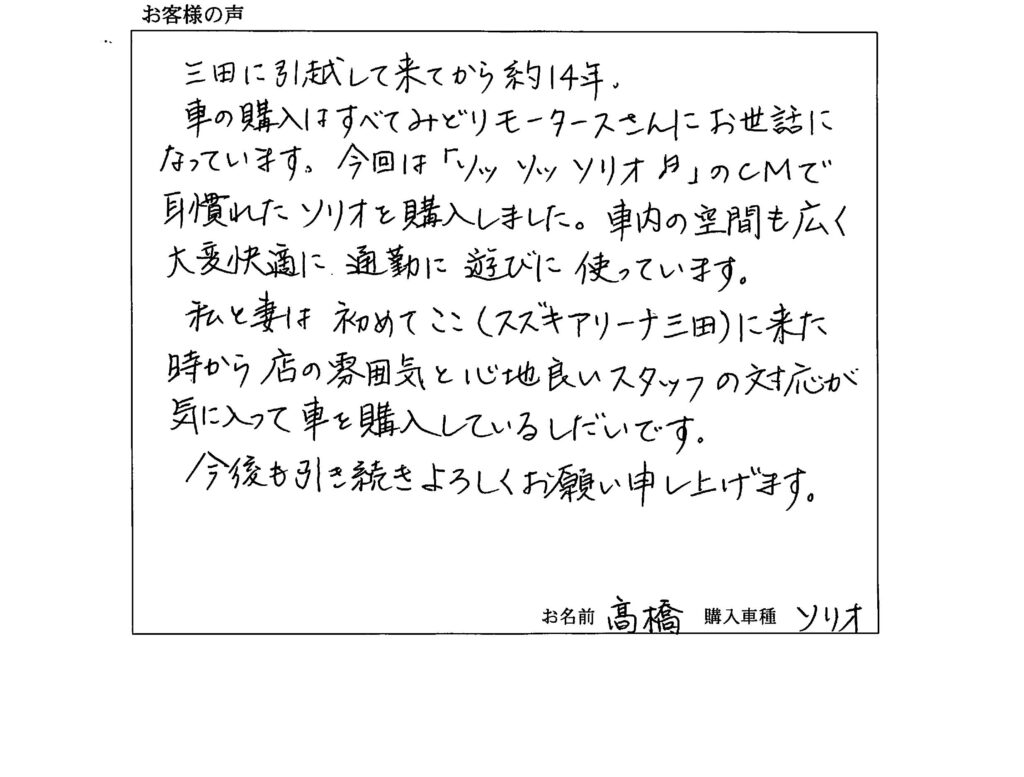 お客様の声
三田に引越して来てから約14年。
車の購入はすべてみどりモータースさんにお世話に
なっています。今回は「ソッ ソッ ソリオ♬」のCMで
耳慣れたソリオを購入しました。車内の空間も広く
大変快適に 通勤に 遊びに 使っています。
私と妻は 初めてここ(スズキアリーナ三田)に来た
時から 店の雰囲気と心地良いスタッフの対応が
気に入って車を購入しているしだいです。
今後も引き続きよろしくお願い申し上げます。
お名前 高橋 購入車種 ソリオ